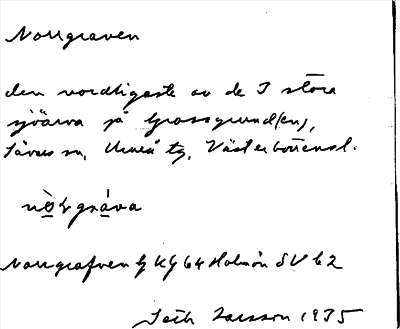 Norrgraven
den nordligaste av de 3 stora
sjöarna på Grossgrund(en),
Sävars sn, Umeå tg, Västerbottensl.
nò̱rgrá̱va
Norrgrafven Gj KG 64 Holmön SV b2
Seth Larsson 1935